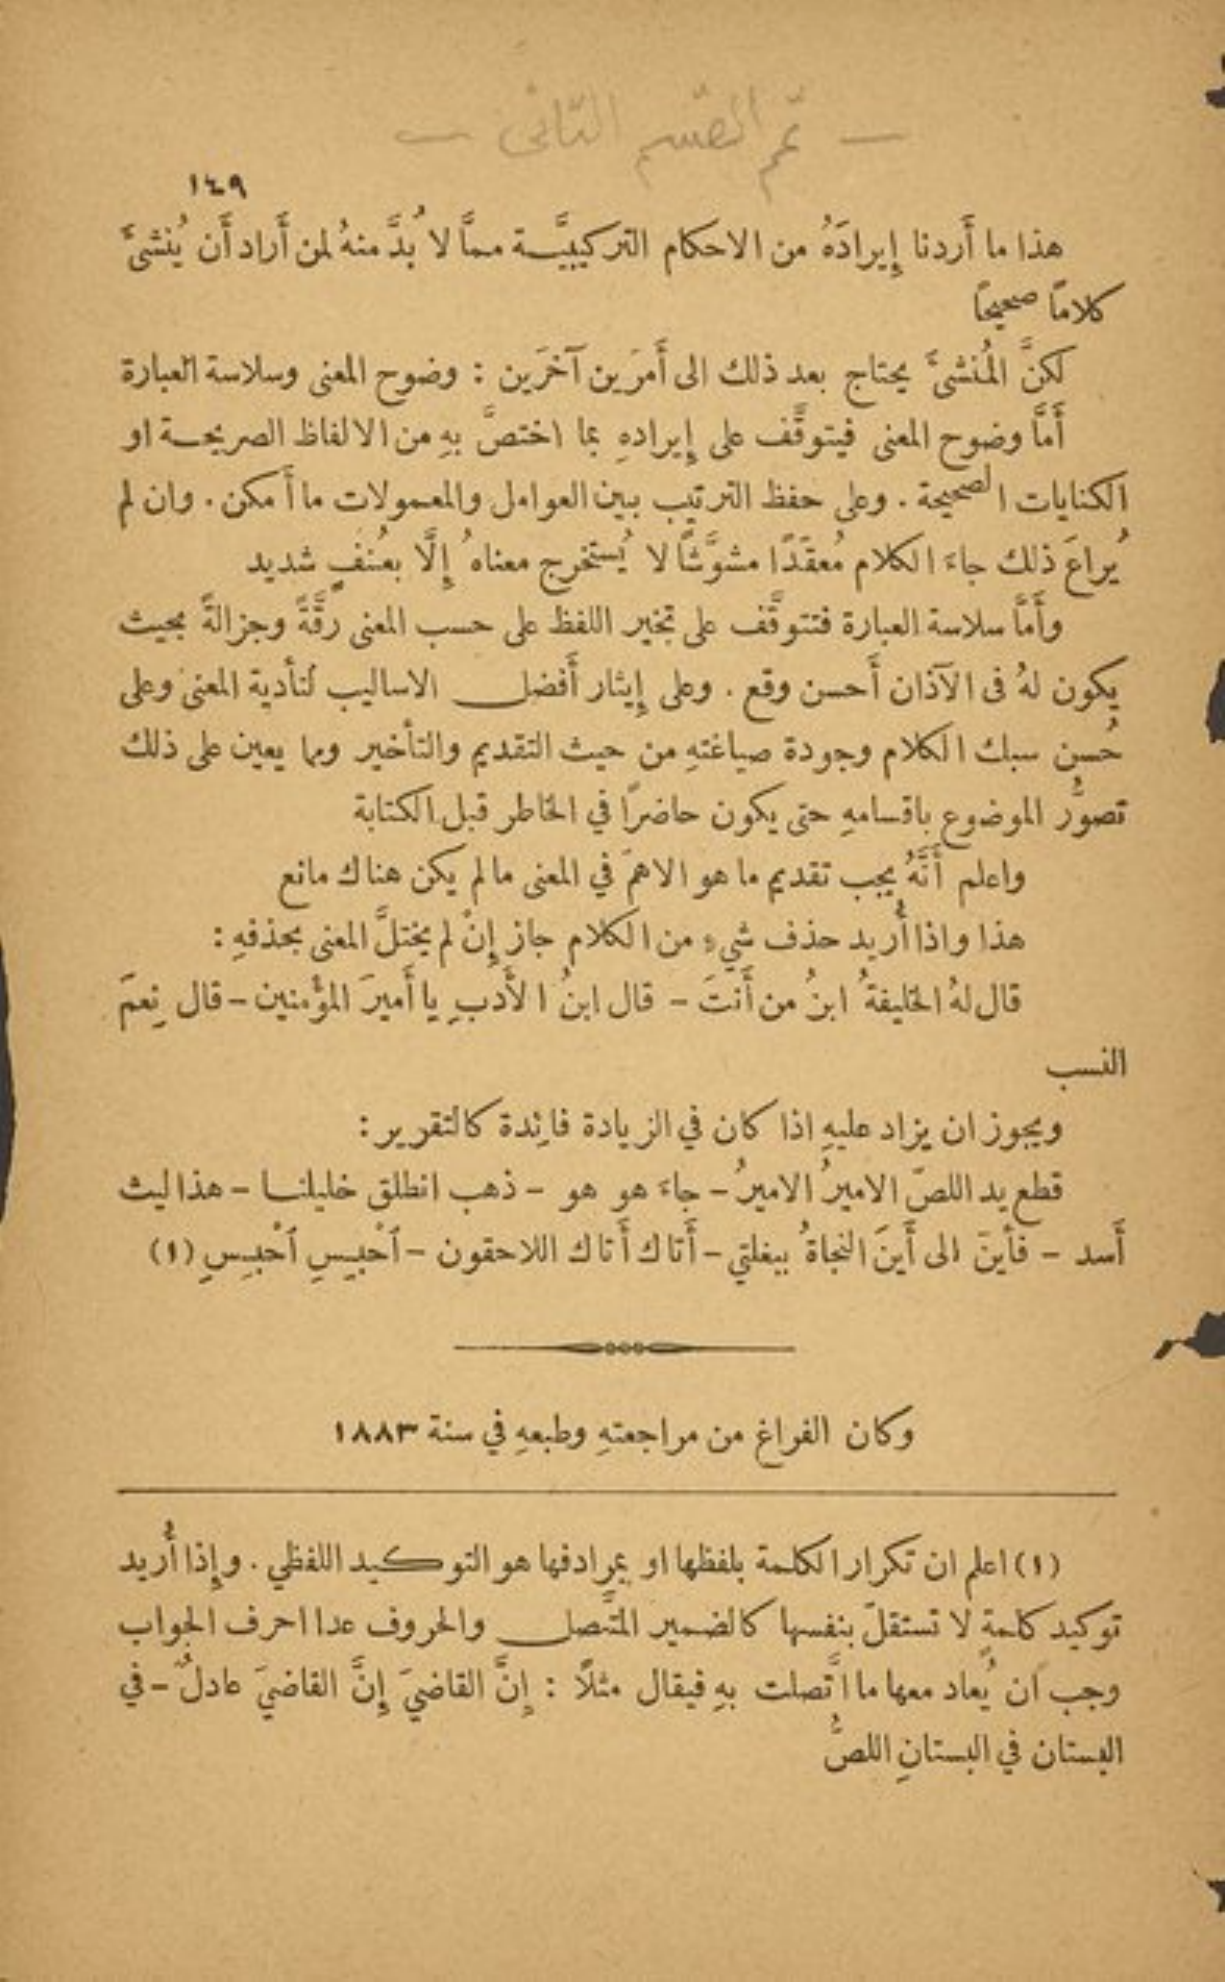 — تم القسم الثاني —
١٤٩
هذا ما أَردنا إِيرادَهُ من الاحكام التركيبيَّة ممَّا لا بُدَّ منهُ لمن أَراد أَن يُنشئَ
كلامًا صحيحًا
لكنَّ المُنشئَ يحتاج بعد ذلك الى أَمرَين آخرَين : وضوح المعنى وسلاسة العبارة
أَمَّا وضوح المعنى فيتوقَّف على إِيرادهِ بما اختصَّ بهِ من الالفاظ الصريحة او
الكنايات الصحيحة . وعلى حفظ الترتيب بين العوامل والمعمولات ما أَمكن . وان لم
يُراعَ ذلك جاءَ الكلام مُعقَدًا مشوَّشًا لا يُستخرج معناهُ إِلَّا بعُنفٍ شديد
وأَمَّا سلاسة العبارة فتتوقَّف على تخير اللفظ على حسب المعنى رقَّةً وجزالةً بحيث
يكون لهُ فى الآذان أَحسن وقع . وعلى إِيثار أَفضل الاساليب لتأدية المعنى وعلى
حُسن سبك الكلام وجودة صياغتهِ من حيث التقديم والتأخير ومما يعين على ذلك
تصوُّر الموضوع باقسامهِ حتى يكون حاضرًا في الخاطر قبل الكتابة
واعلم أَنَّهُ يجب تقديم ما هو الاهمّ في المعنى ما لم يكن هناك مانع
هذا واذا أُريد حذف شيءٍ من الكلام جاز إِنْ لم يختلَّ المعنى بحذفهِ :
قال لهُ الخليفةُ ابنُ من أَنتَ – قال ابنُ الأَدبِ يا أَميرَ المؤمنين – قال نِعمَ
النسب
ويجوز ان يزاد عليهِ اذا كان في الزيادة فائدة كالتقرير :
قطع يد اللصّ الاميرُ الاميرُ – جاءَ هو هو – ذهب انطلق خليلنا – هذا ليث
أَسد – فأينَ الى أَينَ النجاةُ ببغلتي – أَتاك أَتاك اللاحقون – اَحْبِسِ اَحْبِسِ (١)
وكان الفراغ من مراجعتهِ وطبعهِ في سنة ١٨٨٣
(١) اعلم ان تكرار الكلمة بلفظها او بمرادفها هو التوكيد اللفظي . وإِذا أُريد
توكيد كلمةٍ لا تستقلّ بنفسها كالضمير المتَّصل والحروف عدا احرف الجواب
وجب ان يُعاد معها ما اتَّصلت بهِ فيقال مثلًا : إِنَّ القاضيَ إِنَّ القاضيَ عادلٌ – في
البستان في البستانِ اللصُّ